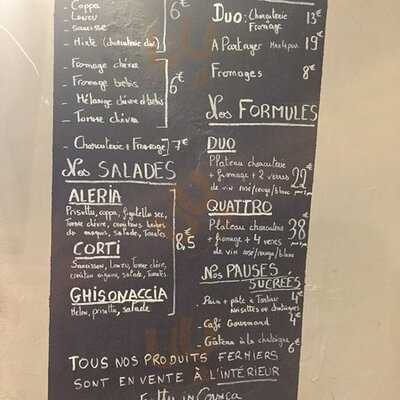 Coppa
Lonzu
saucisse
- Mixte (charcuterie duo)
6€
- Fromage chèvre
- Fromage brebis
- Mélange chèvre et brebis
- Tomme chèvre
6€
- Charcuterie + Fromage 7€
Nos SALADES
ALERIA
Prisuttu, coppa, figatellu sec,
Tomme chèvre, croûtons herbes
du maquis, salade, Tomates.
CORTI
Saucisson, Lonzu, Tomme chèvre,
salade, Tomates
GHISONACCIA
Melon, prisuttu, salade
8,5€
DUO: Charcuterie Fromage 13€
A PARTAGER 19€
Fromages 8€
Nos FORMULES
DUO
Plateau charcuterie
+ fromage + 2 verres
de vin rosé/rouge/blanc
22€
QUATTRO
Plateau charcuterie
+ fromage + 4 verres
de vin rosé/rouge/blanc
38€
Nos PAUSES
SUCRÉES
- Pain + pâte à Tartiner
noisettes ou châtaignes 4€
- Café Gourmand 4€
- Gâteau à la châtaigne 6€
TOUS NOS PRODUITS FERMIERS
SONT EN VENTE À L'INTÉRIEUR